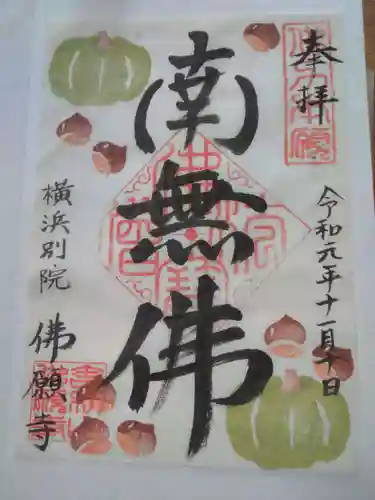 奉拝
令和元年十一月十日
南無佛
横浜別院
佛願寺